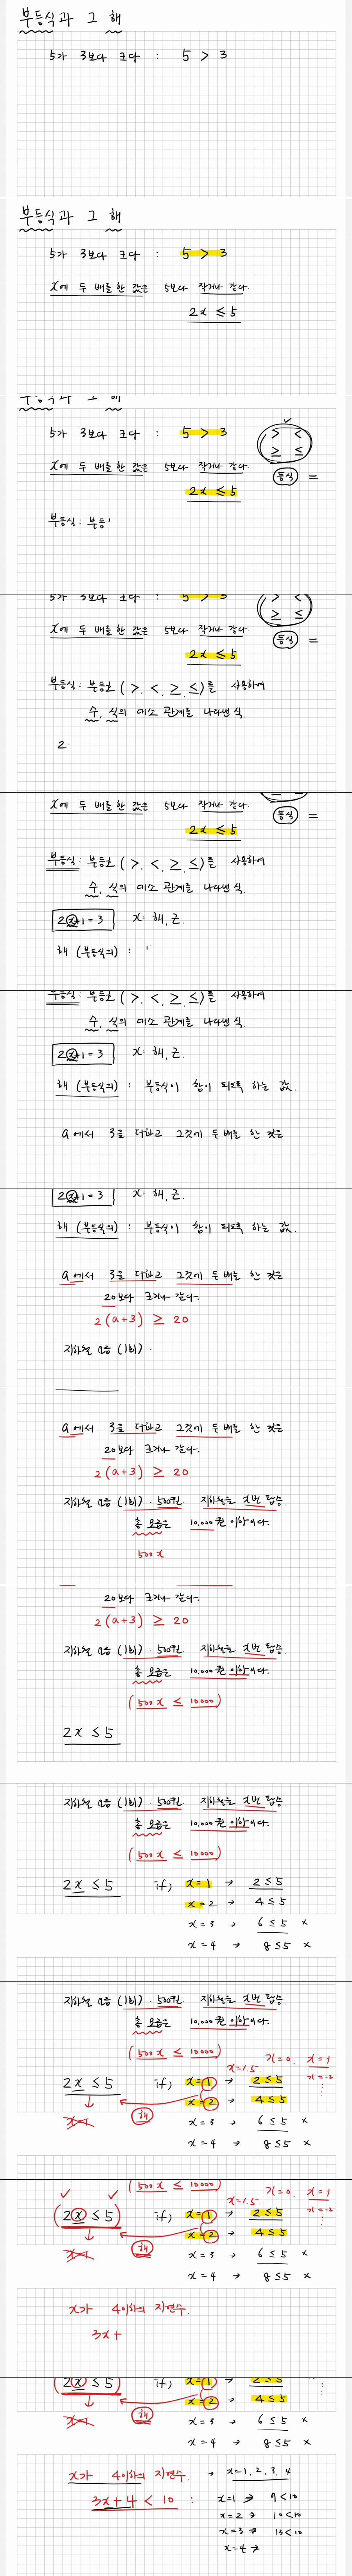 부등식과 그 해
5가 3보다 크다 : 5 > 3
부등식과 그 해
5가 3보다 크다 : 5 > 3
x에 두 배를 한 값은 5보다 작거나 같다.
2x ≤ 5
부등식과 그 해
5가 3보다 크다 : 5 > 3 > <
≥ ≤
x에 두 배를 한 값은 5보다 작거나 같다. 등식 =
2x ≤ 5
부등식 : 부등
5가 3보다 크다 : 5 > 3 > <
≥ ≤
x에 두 배를 한 값은 5보다 작거나 같다. 등식 =
2x ≤ 5
부등식 : 부등호 ( >, <, ≥, ≤ )를 사용하여
수, 식의 대소 관계를 나타낸 식
2
x에 두 배를 한 값은 5보다 작거나 같다. 등식 =
2x ≤ 5
부등식 : 부등호 ( >, <, ≥, ≤ )를 사용하여
수, 식의 대소 관계를 나타낸 식
2x+1 = 3 x : 해, 근.
해 (부등식의) :
부등식 : 부등호 ( >, <, ≥, ≤ )를 사용하여
수, 식의 대소 관계를 나타낸 식
2x+1 = 3 x : 해, 근.
해 (부등식의) : 부등식이 참이 되도록 하는 값.
a에서 3을 더하고 그것에 두 배를 한 것은
2x+1 = 3 x : 해, 근.
해 (부등식의) : 부등식이 참이 되도록 하는 값.
a에서 3을 더하고 그것에 두 배를 한 것은
20보다 크거나 같다.
2(a+3) ≥ 20
지하철 요금 (1회) :
a에서 3을 더하고 그것에 두 배를 한 것은
20보다 크거나 같다.
2(a+3) ≥ 20
지하철 요금 (1회) : 500원. 지하철을 x번 탑승.
총 요금은 10,000원 이하이다.
500x
20보다 크거나 같다.
2(a+3) ≥ 20
지하철 요금 (1회) : 500원. 지하철을 x번 탑승.
총 요금은 10,000원 이하이다.
(500x ≤ 10000)
2x ≤ 5
지하철 요금 (1회) : 500원. 지하철을 x번 탑승.
총 요금은 10,000원 이하이다.
(500x ≤ 10000)
2x ≤ 5 if) x=1 → 2 ≤ 5
x=2 → 4 ≤ 5
x=3 → 6 ≤ 5 ×
x=4 → 8 ≤ 5 ×
지하철 요금 (1회) : 500원. 지하철을 x번 탑승.
총 요금은 10,000원 이하이다.
(500x ≤ 10000)
x=1.5 x=0 x=-1
2x ≤ 5 if) x=1 → 2 ≤ 5 x=-2
x=2 → 4 ≤ 5
해 x=3 → 6 ≤ 5 ×
x=4 → 8 ≤ 5 ×
(500x ≤ 10000)
x=1.5 x=0 x=-1
(2x ≤ 5) if) x=1 → 2 ≤ 5 x=-2
x=2 → 4 ≤ 5
해 x=3 → 6 ≤ 5 ×
x=4 → 8 ≤ 5 ×
x가 4이하의 자연수.
3x+
(2x ≤ 5) if) x=1 → 2 ≤ 5
x=2 → 4 ≤ 5
해 x=3 → 6 ≤ 5 ×
x=4 → 8 ≤ 5 ×
x가 4이하의 자연수. → x=1, 2, 3, 4
3x+4 < 10 : x=1 → 7 < 10
x=2 → 10 < 10
x=3 → 13 < 10
x=4 →